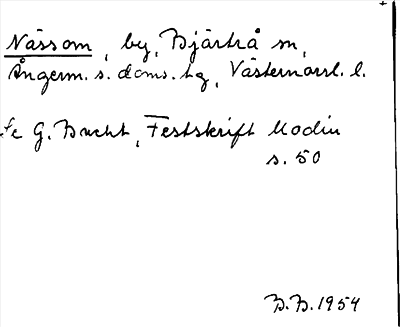 Nässom, by, Bjärtrå sn,
Ångerm. s. doms. tg, Västernorrl. l.
Se G. Bucht, Festskrift Modin
s. 50
B.B. 1954